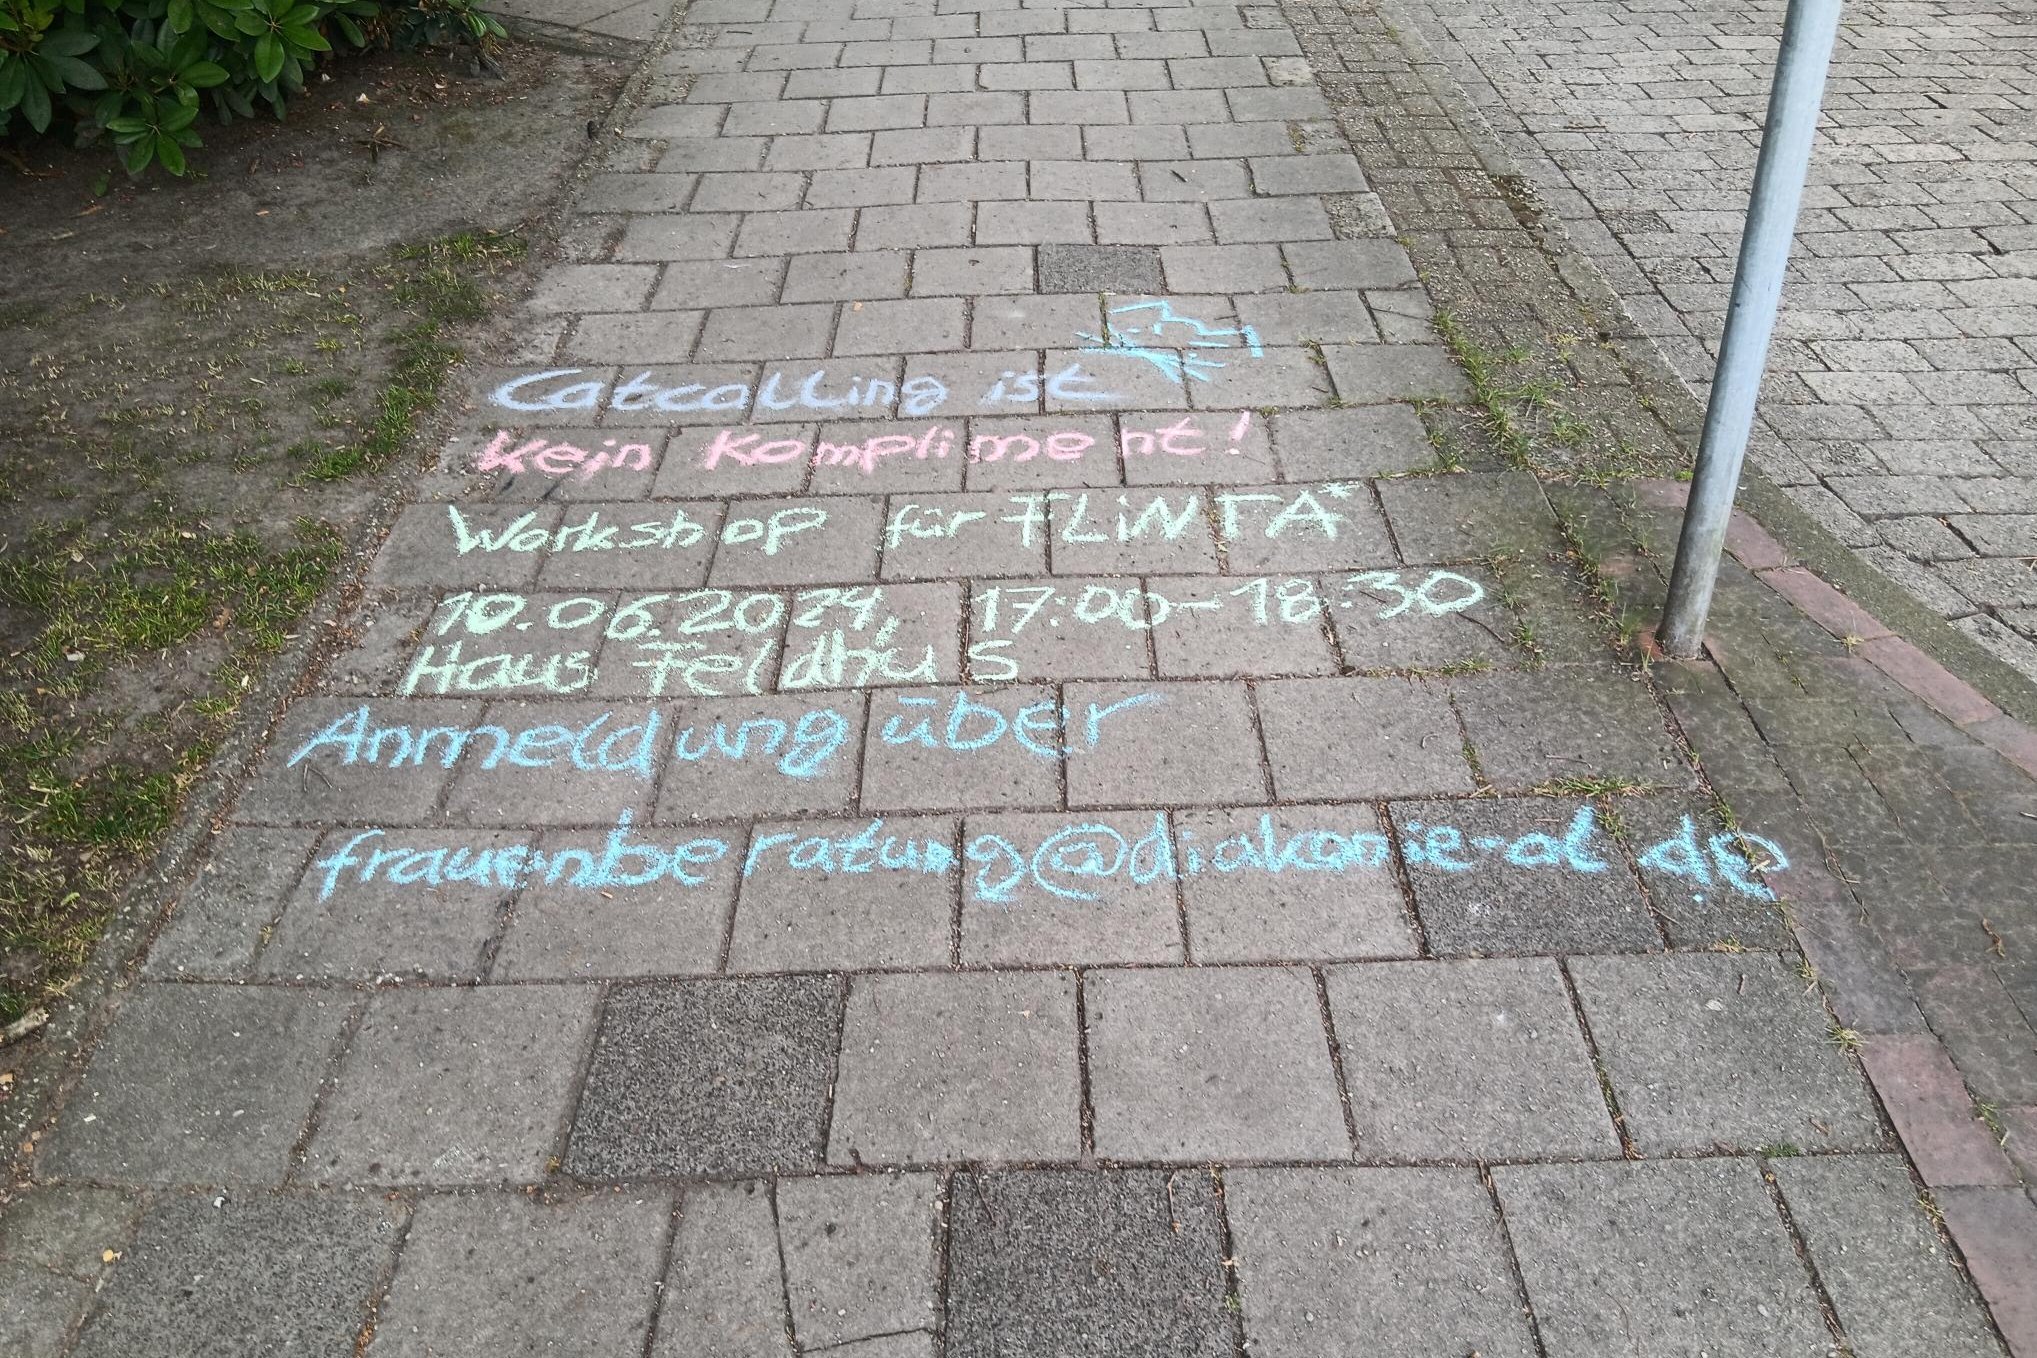 Catcalling ist
kein Kompliment!
Workshop für FLiNTA*
10.06.2024, 17:00-18:30
Haus Feldhus
Anmeldung über
frauenberatung@diakonie-ol.de